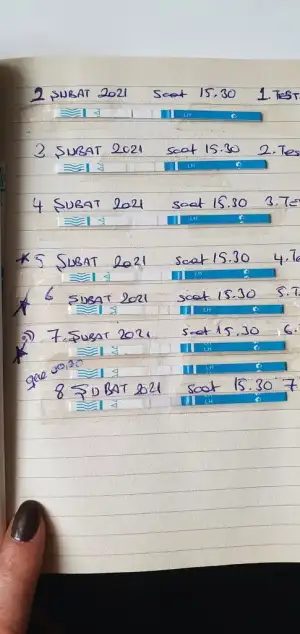 2 ŞUBAT 2021 Saat 15.30 1.TEST
LH
3 ŞUBAT 2021 saat 15.30 2.Tes
LH
4 ŞUBAT 2021 saat 15.30 3.Te
LH
5 ŞUBAT 2021 saat 15.30 4.Te
LH
6 ŞUBAT 2021 saat 15.30 5.T
LH
7.ŞUBAT 2021 saat 15.30 6.
LH
gece 00:30
LH
8 ŞUBAT 2021 saat 15.30 7
LH